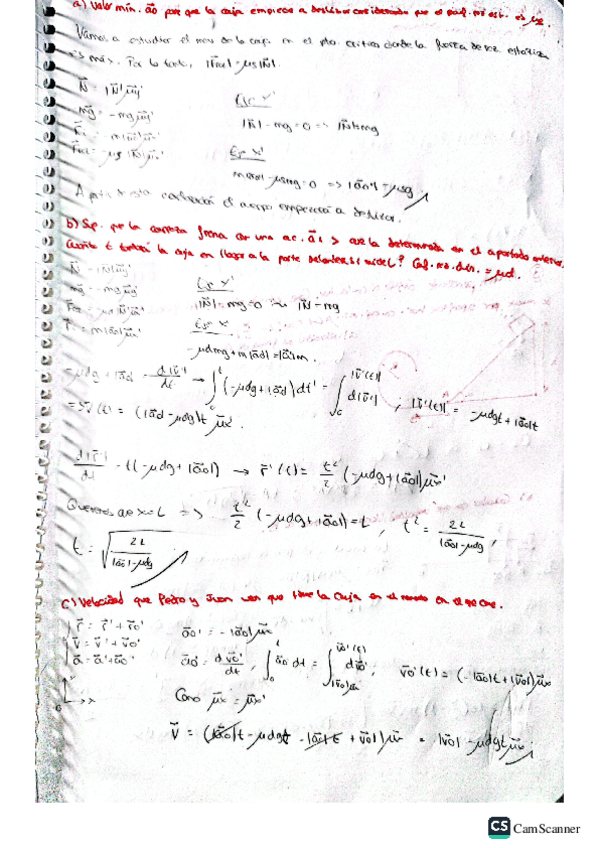 a) Valor mín. a⃗o para que la caja empiece a deslizar considerando que el coef. roz. est. es μs.
Vamos a estudiar el mov. de la caja en el pto. crítico donde la fuerza de roz. estática
es máx. Por lo tanto, |F⃗roz| = μs|N⃗|.
N⃗ = |N⃗|μ⃗y'
Eje Y'
m⃗g = -mgμ⃗y'
|N⃗| - mg = 0 => |N⃗| = mg
Eje X'
m|a⃗o| - μsmg = 0 => |a⃗o| = μsg
A partir de esta aceleración el cuerpo empezará a deslizar.
b) Sup. que la camioneta frena con una ac. a⃗1 > que la determinada en el apartado anterior.
Cuánto t tardará la caja en llegar a la parte delantera si mide L? Coef. roz. din. = μd.
N⃗ = |N⃗|μ⃗y'
Eje Y'
m⃗g = -mgμ⃗y'
|N⃗| - mg = 0 |N⃗| = mg
Eje X'
-μdmg + m|a⃗o| = |a⃗'|m.
-μdg + |a⃗o| = d|v⃗'|/dt → ∫ (-μdg + |a⃗o|)dt' = ∫ d|v⃗'| ; |v⃗'(t)| = -μdgt + |a⃗o|t
=> v⃗'(t) = (|a⃗o| - μdg)t μ⃗x'.
d|r⃗'|/dt = t(-μdg + |a⃗o|) → r⃗'(t) = t²/2 (-μdg + |a⃗o|)μ⃗x'
Queremos que x = L => t²/2 (-μdg + |a⃗o|) = L, t² = 2L/|a⃗o| - μdg,
t = √2L/|a⃗o| - μdg
c) Velocidad que Pedro y Juan ven que tiene la caja en el
r⃗ = r⃗' + r⃗o'
a⃗o' = -|a⃗o|μ⃗x
v⃗ = v⃗' + v⃗o'
a⃗ = a⃗' + a⃗o'
a⃗o' = dv⃗o'/dt, ∫ a⃗o dt = ∫ dv⃗o', v⃗o'(t) = (-|a⃗o|t + |v⃗o|)μ⃗x
Como μ⃗x = μ⃗x'
v⃗ = (|a⃗o|t - μdgt - |a⃗o|t + |v⃗o|)μ⃗x = |v⃗o| - μdgtμ⃗x
CS CamScanner